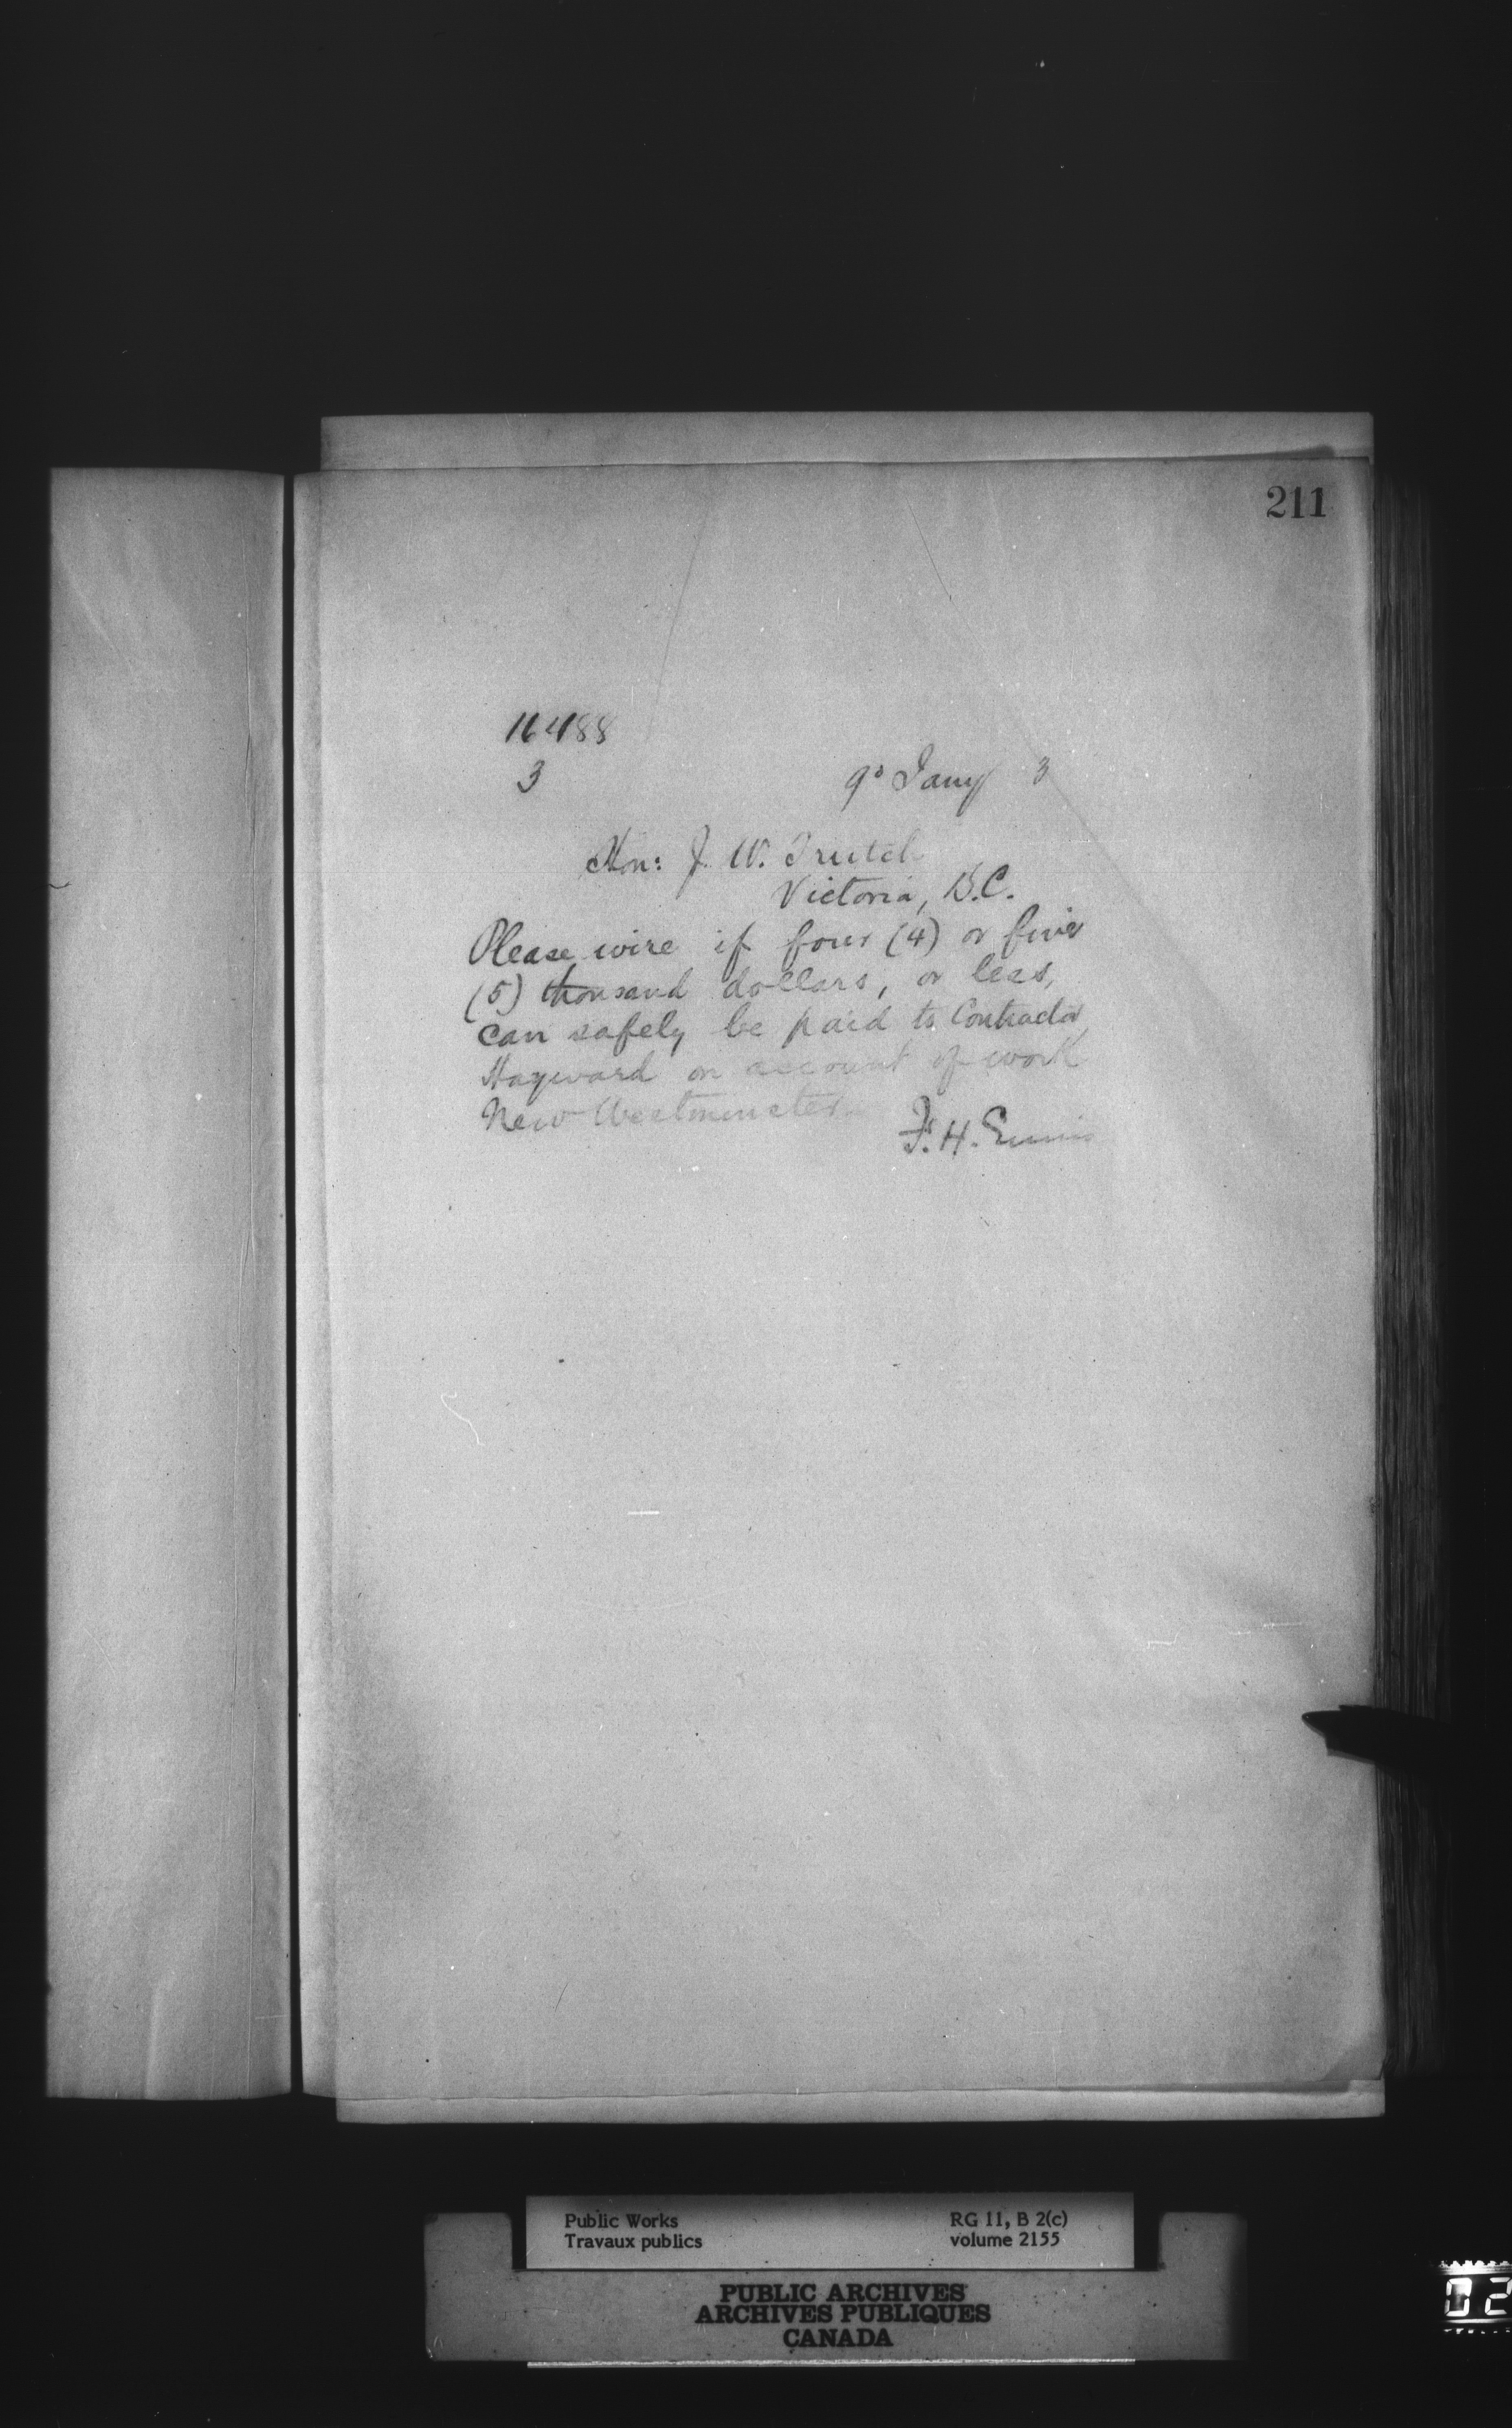 211
16488
3
9th Jany 3
Hon: J. W. Trutch
Victoria, B.C.
Please wire if four (4) or five
(5) thousand dollars, or less,
can safely be paid to Contractor
Hayward on account of work
New Westminster.
F. H. Ennis
Public Works
Travaux publics
RG 11, B 2(c)
volume 2155
PUBLIC ARCHIVES
ARCHIVES PUBLIQUES
CANADA
02